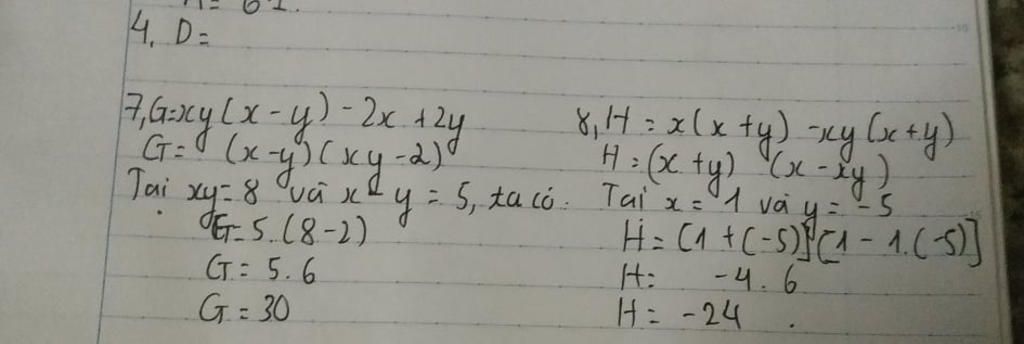 4, D =
7, G = xy(x - y) - 2x + 2y
G = (x - y)(xy - 2)
Tại xy = 8 và x - y = 5, ta có.
G = 5.(8 - 2)
G = 5.6
G = 30
8, H = x(x + y) - xy(x + y)
H = (x + y) (x - xy)
Tại x = 1 và y = -5
H = [1 + (-5)][1 - 1.(-5)]
H = -4.6
H = -24.